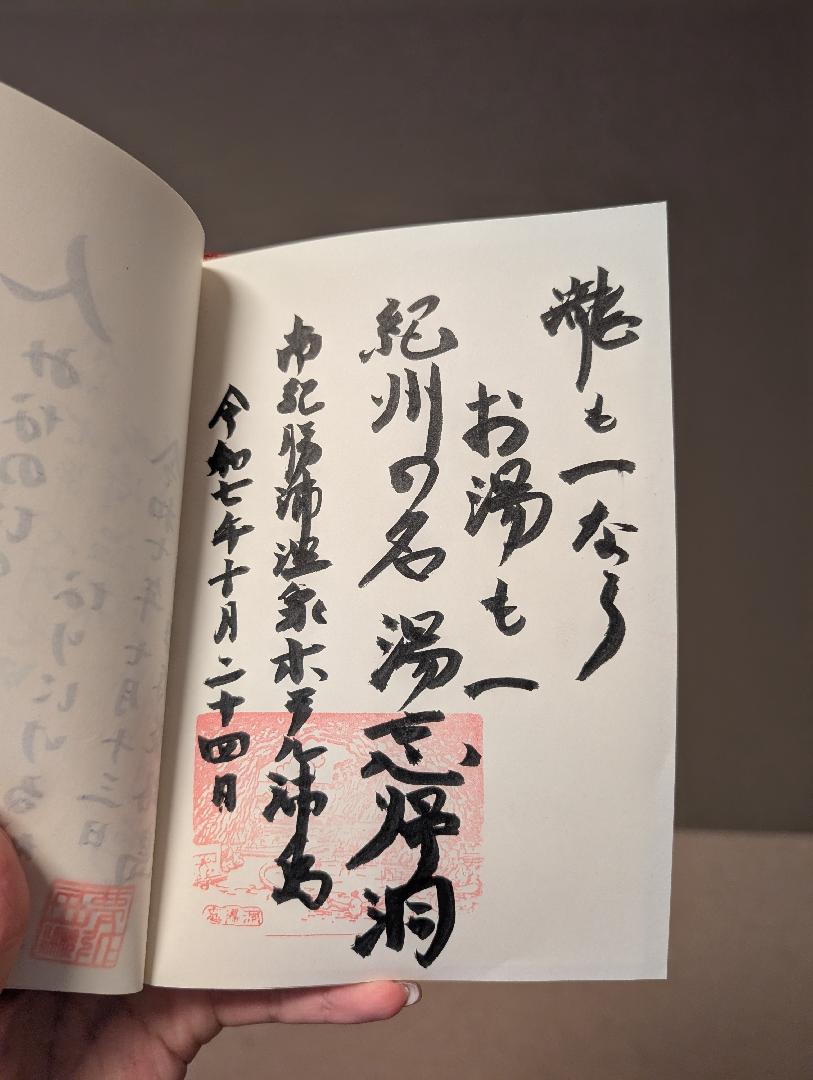 瀧も一なら
お湯も一
紀州の名湯忘帰洞
南紀勝浦温泉ホテル浦島
令和七年十月二十四日
忘帰洞